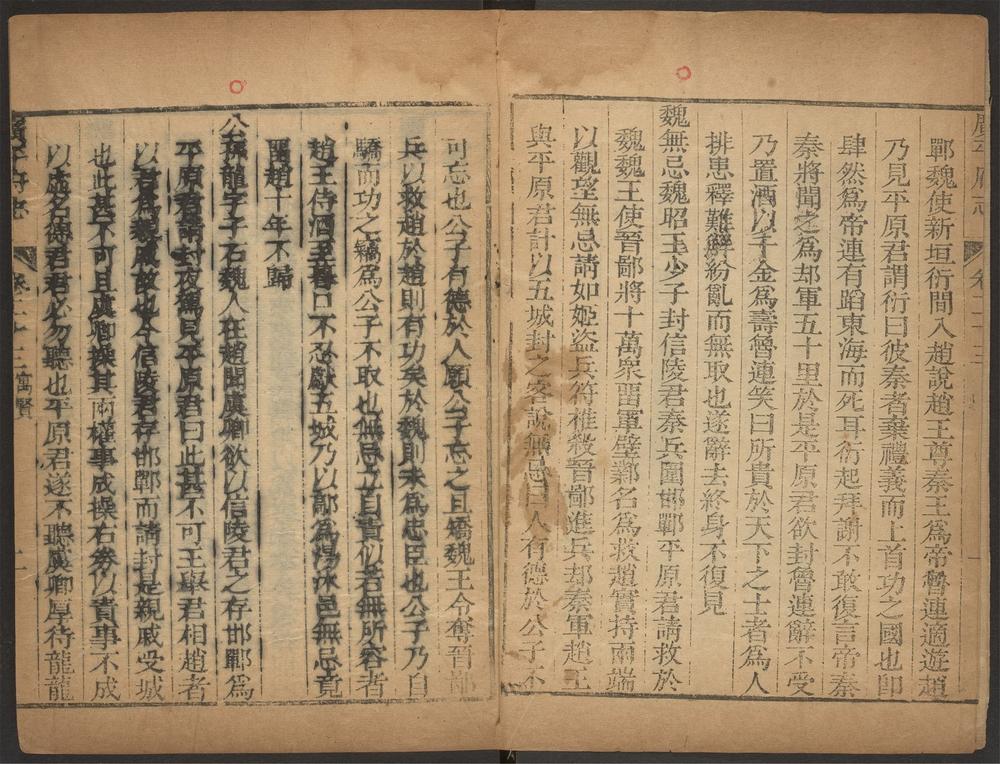 廣平府志 卷二十三
鄲魏使新垣衍間入趙說趙王尊秦王爲帝魯連適遊趙
乃見平原君謂衍曰彼秦者棄禮義而上首功之國也卽
肆然爲帝連有蹈東海而死耳衍起拜謝不敢復言帝秦
秦將聞之爲却軍五十里於是平原君欲封魯連辭不受
乃置酒以千金爲壽魯連笑曰所貴於天下之士者爲人
排患釋難解紛亂而無取也遂辭去終身不復見
魏無忌魏昭王少子封信陵君秦兵圍邯鄲平原君請救於
魏魏王使晉鄙將十萬衆畱軍壁鄴名爲救趙實持兩端
以觀望無忌請如姬盜兵符椎殺晉鄙進兵却秦軍趙王
與平原君計以五城封之客說無忌曰人有德於公子不
可忘也公子有德於人願公子忘之且矯魏王令奪晉鄙
兵以救趙於趙則有功矣於魏則未爲忠臣也公子乃自
驕而功之竊爲公子不取也無忌立自責似若無所容者
趙王侍酒至暮口不忍獻五城乃以鄗爲湯沐邑無忌竟
畱趙十年不歸
公孫龍字子石魏人在趙聞虞卿欲以信陵君之存邯鄲爲
平原君請封夜駕見平原君曰此甚不可王舉君相趙者
以君爲親戚故也今信陵君存邯鄲而請封是親戚受城
也此甚不可且虞卿操其兩權事成操右券以責事不成
以虛名德君君必勿聽也平原君遂不聽虞卿厚待龍龍
廣平府志 卷二十三 寓賢 二